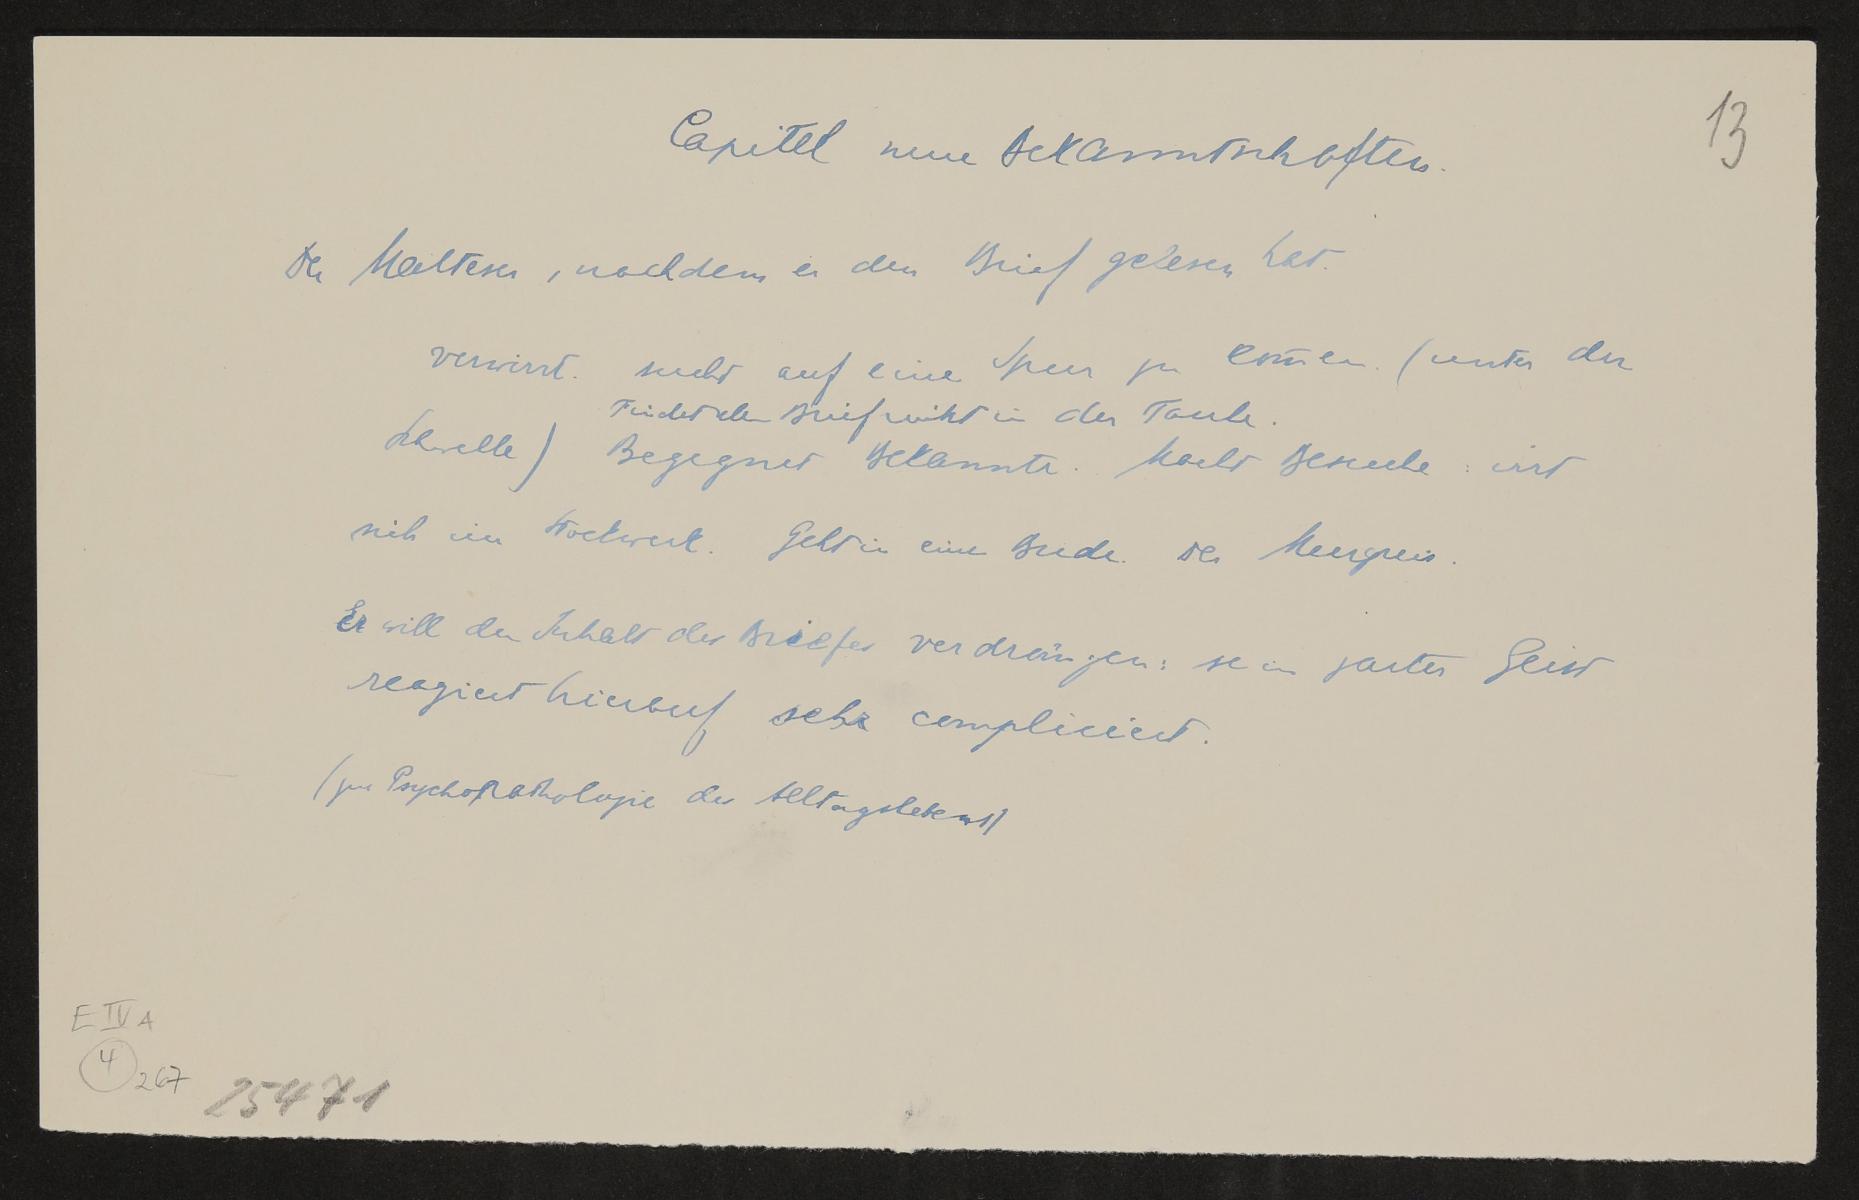 13
Capitel neue Bekanntschaften.
Der Malteser, nachdem er den Brief gelesen hat.
verwirrt. sucht auf eine Spur zu kom̄en. (unter der
Findet den Brief nicht in der Tasche.
Schwelle) Begegnet Bekannte. Macht Besuche: irrt
sich im Stockwerk. Geht in eine Bude. Der Meergreis.
Er will den Inhalt des Briefes verdrängen: sein zarter Geist
reagiert hierauf sehr compliciert.
(zur Psychopathologie des Alltagslebens)
E IV A
4 267
25471